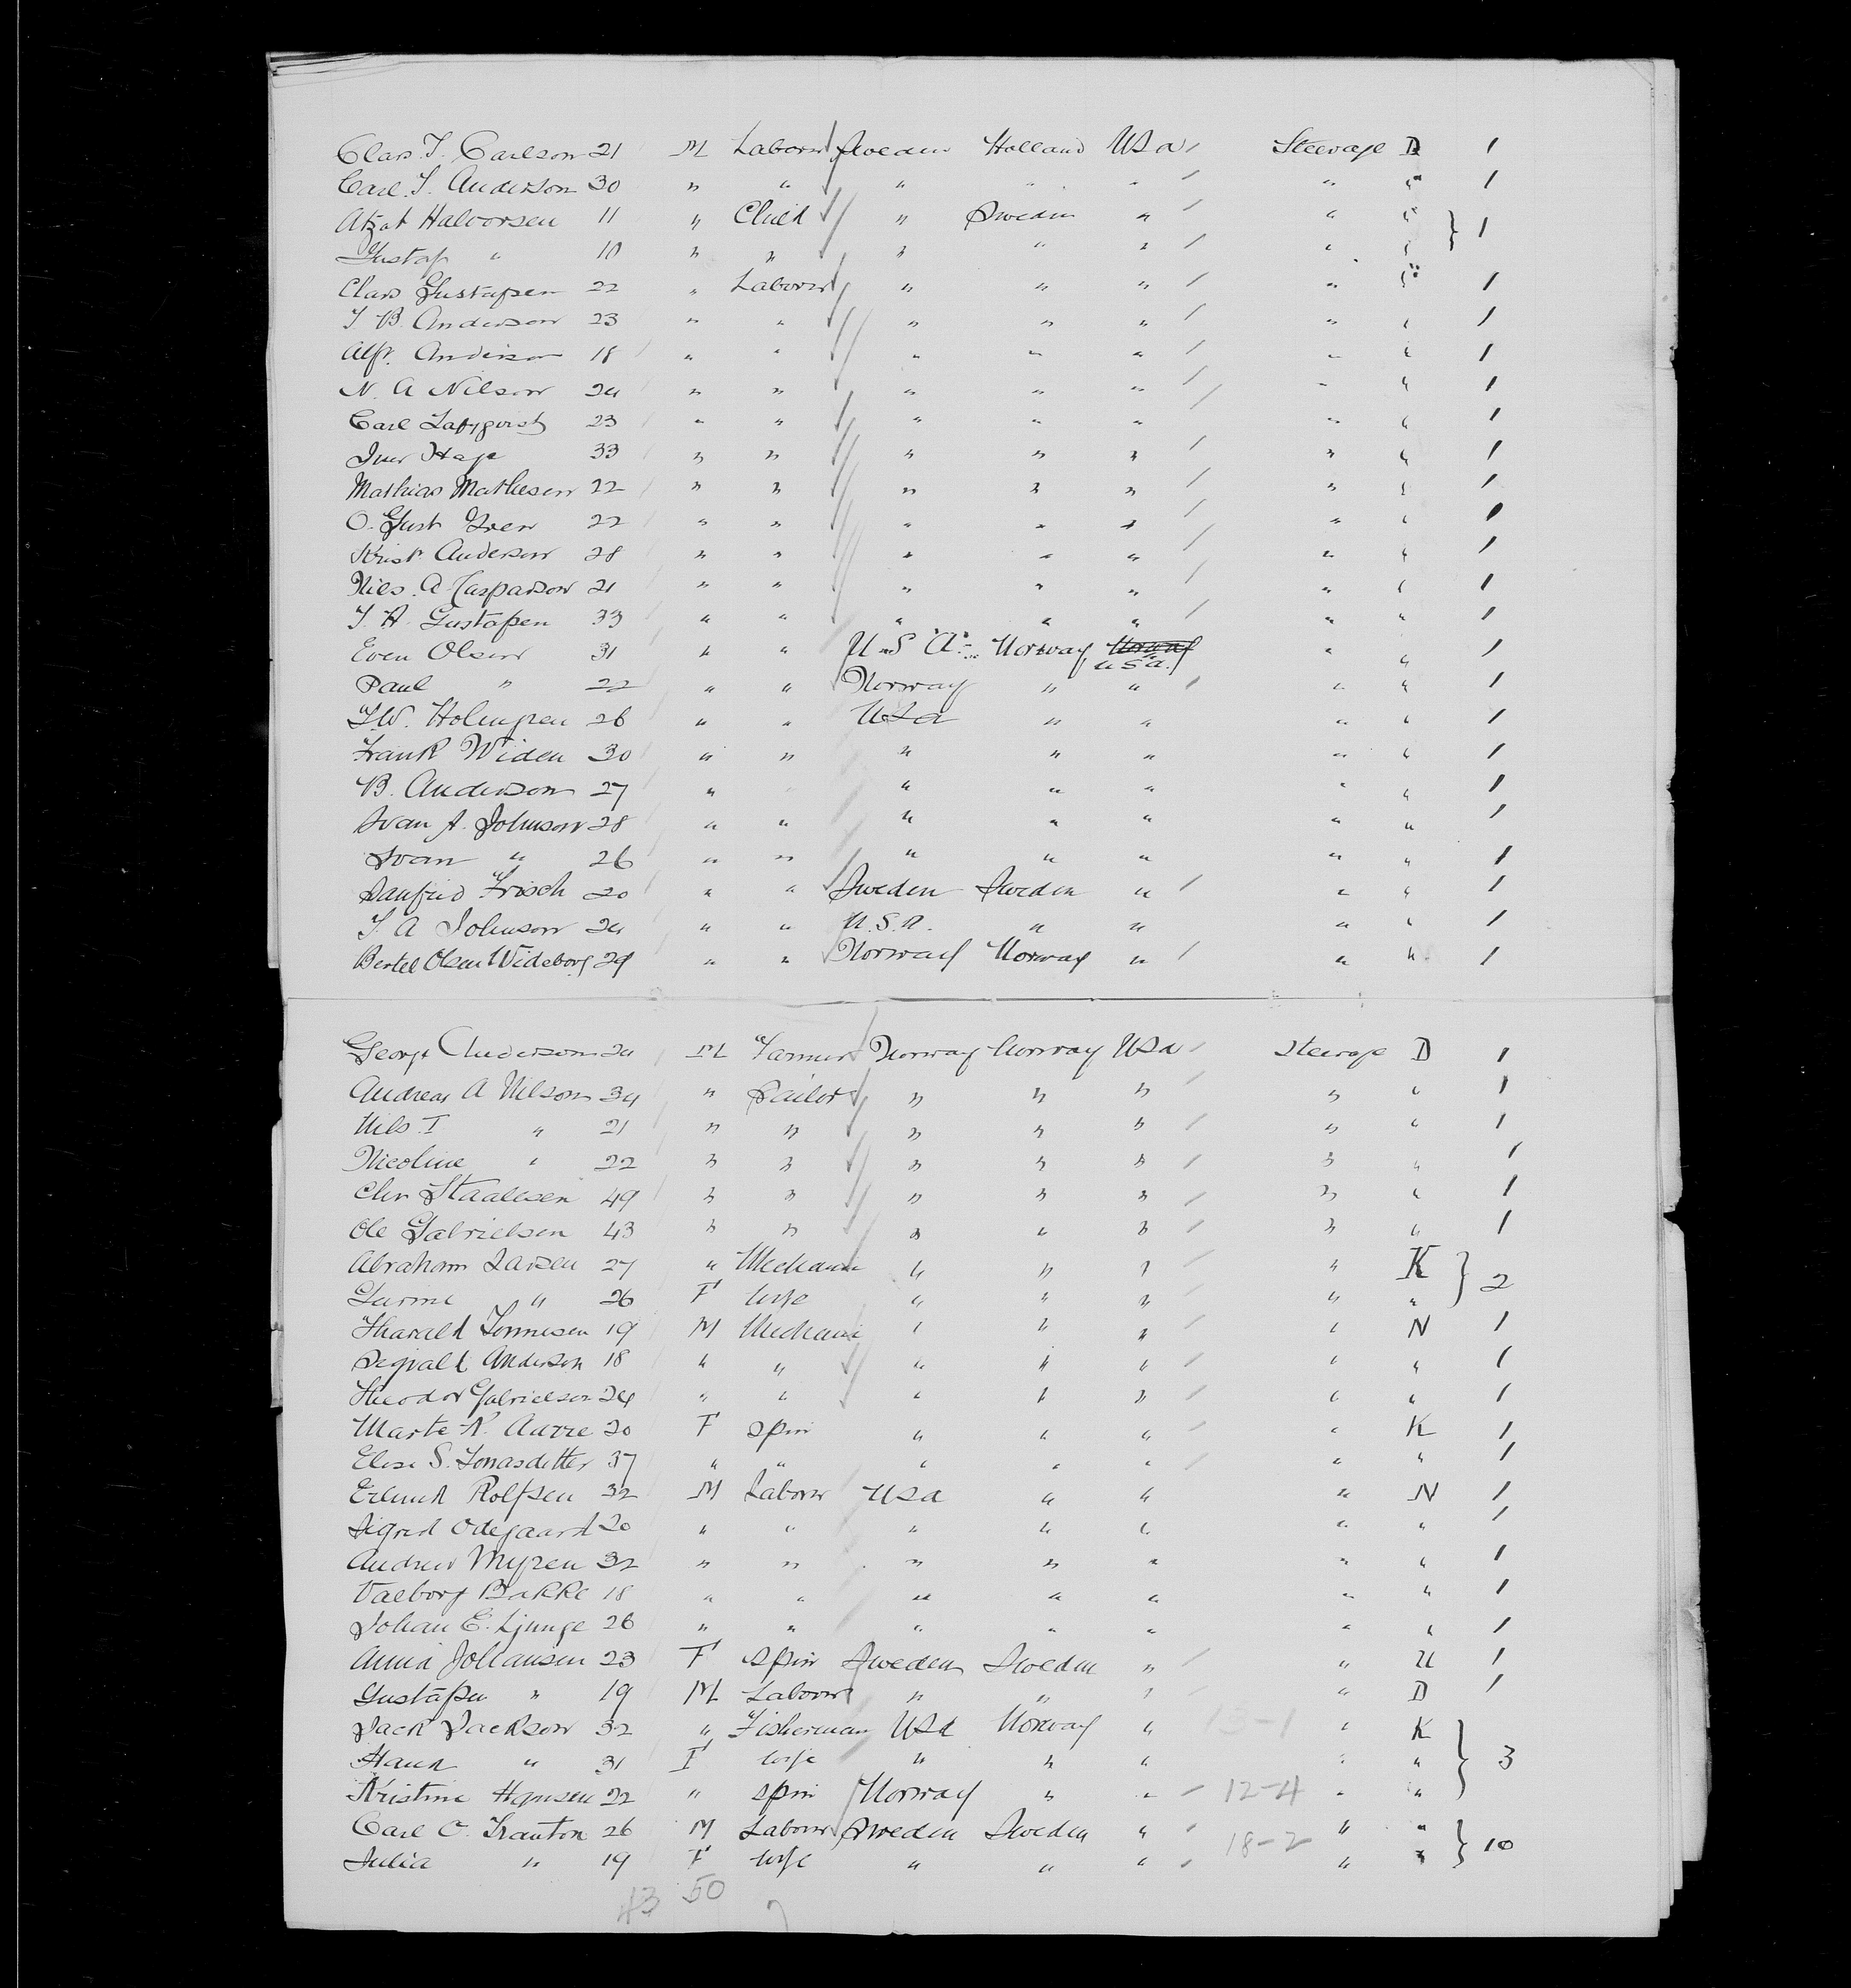 Clas J. Carlson 21 M Laborer Sweden Holland USA Steerage D 1
Carl J. Anderson 30 " " " " " " " 1
Halvorsen 11 " Child " Sweden " " " } 1
Gustaf " 10 " " " " " " "
Clas Gustafsen 22 " Laborer " " " " " 1
J B. Anderson 23 " " " " " " " 1
Alfr. Anderson 18 " " " " " " " 1
N. A Nilson 24 " " " " " " " 1
Carl 23 " " " " " " " 1
Iver Hage 33 " " " " " " " 1
Mathias Mathesen 22 " " " " " " " 1
O. Gust 22 " " " " " " " 1
Krist Anderson 28 " " " " " " " 1
Niels. A Casparson 21 " " " " " " " 1
J. A. Gustafsen 33 " " " " " " " 1
Even Olsen 31 " " U.S.A. Norway Norway " " 1
U S A.
Paul " 22 " " Norway " " " " 1
J.W. Holmgren 26 " " USA " " " " 1
Frank Widen 30 " " " " " " " 1
B. Anderson 27 " " " " " " 1
Svan A. Johnson 28 " " " " " " " 1
Svan " 26 " " " " " " " 1
Sanfrid Frisch 20 " " Sweden Sweden " " " 1
J. A Johnson 24 " " U.S.A. " " " " 1
Bertel Olsen Wideborg 29 " " Norway Norway " " " 1
George Anderson 24 M Farmer Norway Norway USA Steerage D 1
Andreas A Nilson 34 " Sailor " " " " " 1
Nils T " 21 " " " " " " " 1
Nicoline " 22 " " " " " " " 1
Chr Staalesen 49 " " " " " " " 1
Ole Gabrielsen 43 " " " " " " " 1
Abraham Larsen 27 " Mechanic " " " " K } 2
" 26 F Wife " " " " "
Harald Tonnesen 19 M Mechanic " " " " N 1
Anderson 18 " " " " " " " 1
Theodor Gabrielsen 24 " " " " " " " 1
Marte 20 F Spin " " " " K 1
Elise S. Jonasdatter 37 " " " " " " " 1
Rolfsen 32 M Laborer USA " " " N 1
Sigrid Odegaard 20 " " " " " " " 1
Andrew Myren 32 " " " " " " " 1
Valborg Bakke 18 " " " " " " " 1
Johan E. Ljunge 26 " " " " " " " 1
Anna Johansen 23 F Spin Sweden Sweden " " U 1
Gustafsen " 19 M Laborer " " " " D 1
Jack Jackson 32 " Fisherman USA Norway " 13-1 " K } 3
" 31 F Wife " " " " "
Kristine Hansen 22 " Spin Norway " " 12-4 " "
Carl O. Franton 26 M Laborer Sweden Sweden " 18-2 " " } 10
Julia " 19 F Wife " " " " "
43 50